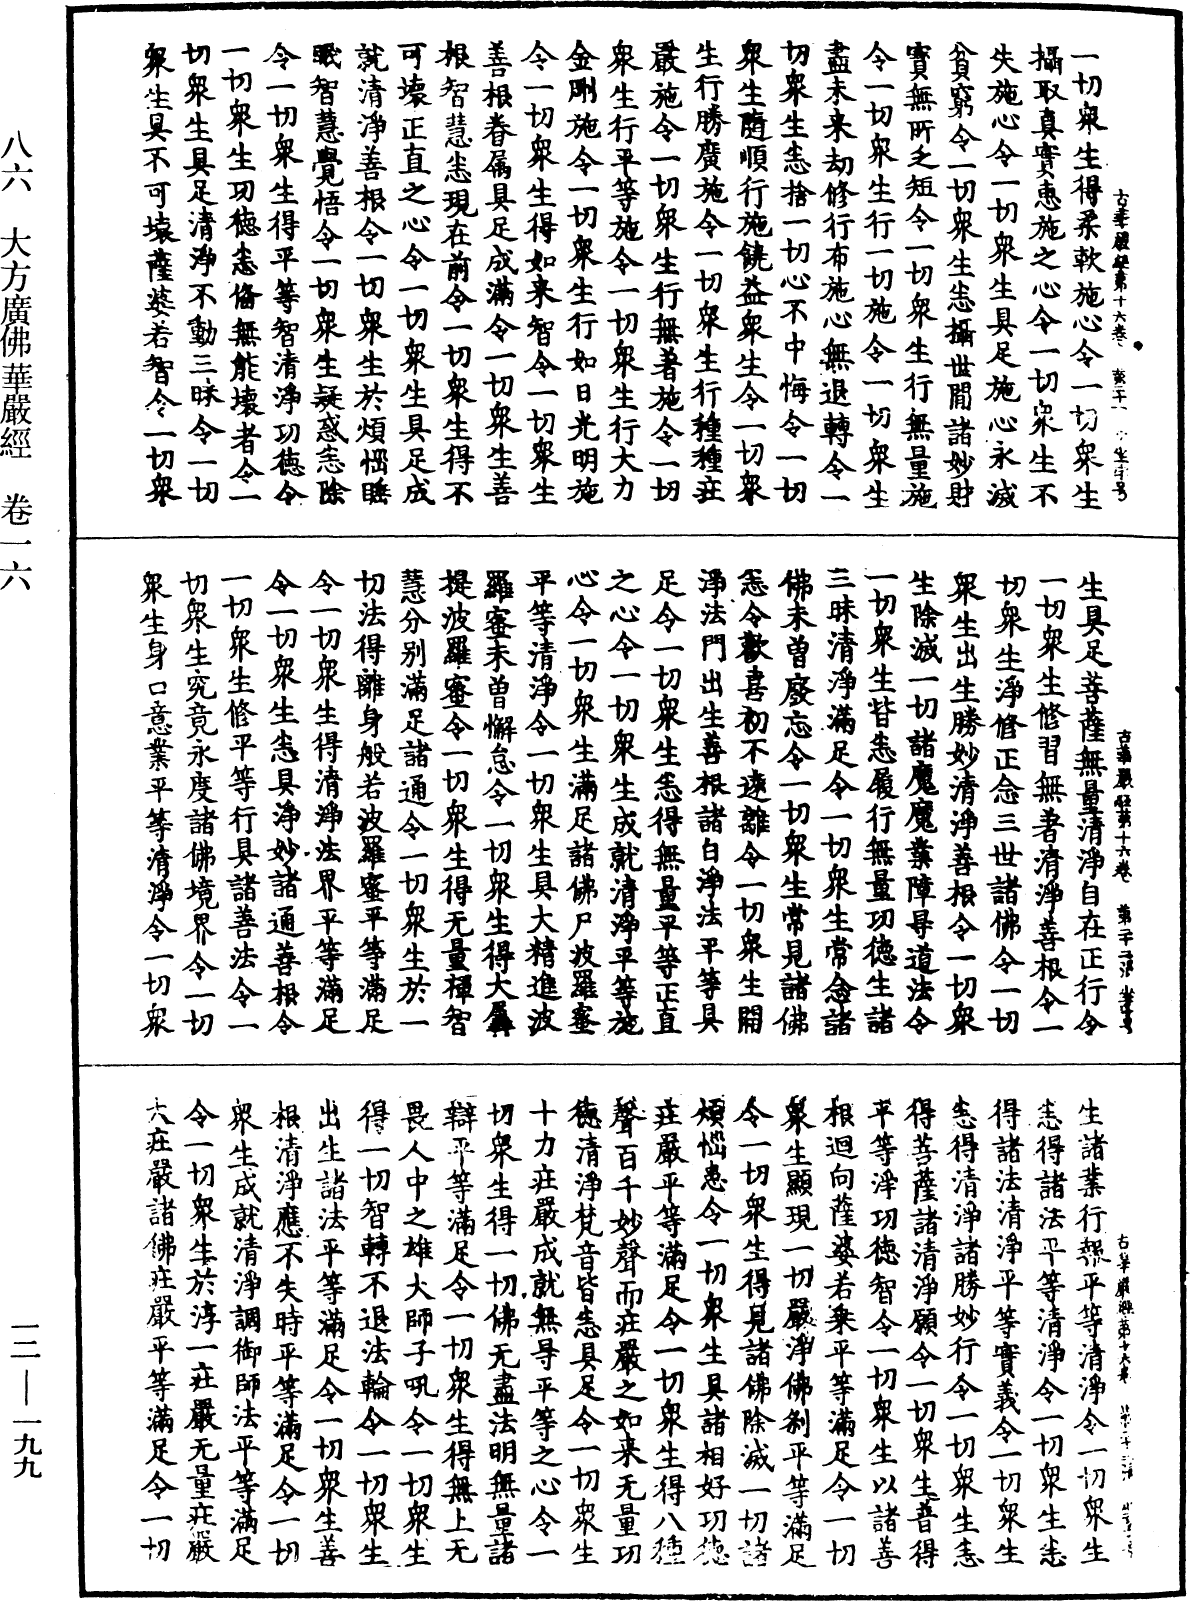 一切衆生得柔軟施心令一切衆生
攝取真實惠施之心令一切衆生不
失施心令一切衆生具足施心永滅
貧窮令一切衆生悉攝世閒諸妙財
寶無所乏短令一切衆生行無量施
令一切衆生行一切施令一切衆生
盡未来劫修行布施心無退轉令一
切衆生悉捨一切心不中悔令一切
衆生隨順行施饒益衆生令一切衆
生行勝廣施令一切衆生行種種莊
嚴施令一切衆生行無著施令一切
衆生行平等施令一切衆生行大力
金剛施令一切衆生行如日光明施
令一切衆生得如来智令一切衆生
善根眷属具足成滿令一切衆生善
根智慧悉現在前令一切衆生得不
可壞正直之心令一切衆生具足成
就清淨善根令一切衆生於煩惱睡
眠智慧覺悟令一切衆生疑惑悉除
令一切衆生得平等智清淨功德令
一切衆生功德悉俻無能壞者令一
切衆生具足清淨不動三昧令一切
衆生具不可壞薩婆若智令一切衆
生具足菩薩無量清淨自在正行令
一切衆生修習無著清淨善根令一
切衆生淨修正念三世諸佛令一切
衆生出生勝妙清淨善根令一切衆
生除滅一切諸魔魔業障㝵道法令
一切衆生皆悉履行無量功德生諸
三昧清淨滿足令一切衆生常念諸
佛未曽廢忘令一切衆生常見諸佛
悉令歡喜初不遠離令一切衆生開
淨法門出生善根諸白淨法平等具
足令一切衆生悉得無量平等正直
之心令一切衆生成就清淨平等施
心令一切衆生滿足諸佛尸波羅蜜
平等清淨令一切衆生具大精進波
羅蜜未曽懈怠令一切衆生得大羼
提波羅蜜令一切衆生得无量禪智
慧分別滿足諸通令一切衆生於一
切法得離身般若波羅蜜平等滿足
令一切衆生得清淨法界平等滿足
令一切衆生悉具淨妙諸通善根令
一切衆生修平等行具諸善法令一
切衆生究竟永度諸佛境界令一切
衆生身口意業平等清淨令一切衆
生諸業行報平等清淨令一切衆生
悉得諸法平等清淨令一切衆生悉
得諸法清淨平等實義令一切衆生
悉得清淨諸勝妙行令一切衆生悉
得菩薩諸清淨願令一切衆生普得
平等淨功徳智令一切衆生以諸善
根迴向薩婆若乘平等滿足令一切
衆生顯現一切嚴淨佛刹平等滿足
令一切衆生得見諸佛除滅一切諸
煩惱患令一切衆生具諸相好功德
莊嚴平等滿足令一切衆生得八種
聲百千妙聲而莊嚴之如来无量功
德清淨梵音皆悉具足令一切衆生
十力莊嚴成就無㝵平等之心令一
切衆生得一切佛无盡法明無量諸
辯平等滿足令一切衆生得無上无
畏人中之雄大師子吼令一切衆生
得一切智轉不退法輪令一切衆生
出生諸法平等滿足令一切衆生善
根清淨應不失時平等滿足令一切
衆生成就清淨調御師法平等滿足
令一切衆生於淳一莊嚴无量莊嚴
大莊嚴諸佛莊嚴平等滿足令一切
古華嚴經第十六卷
古華嚴經第十六卷
古華嚴經第十六卷
八六 大方廣佛華嚴經 卷一六
一二—一九九